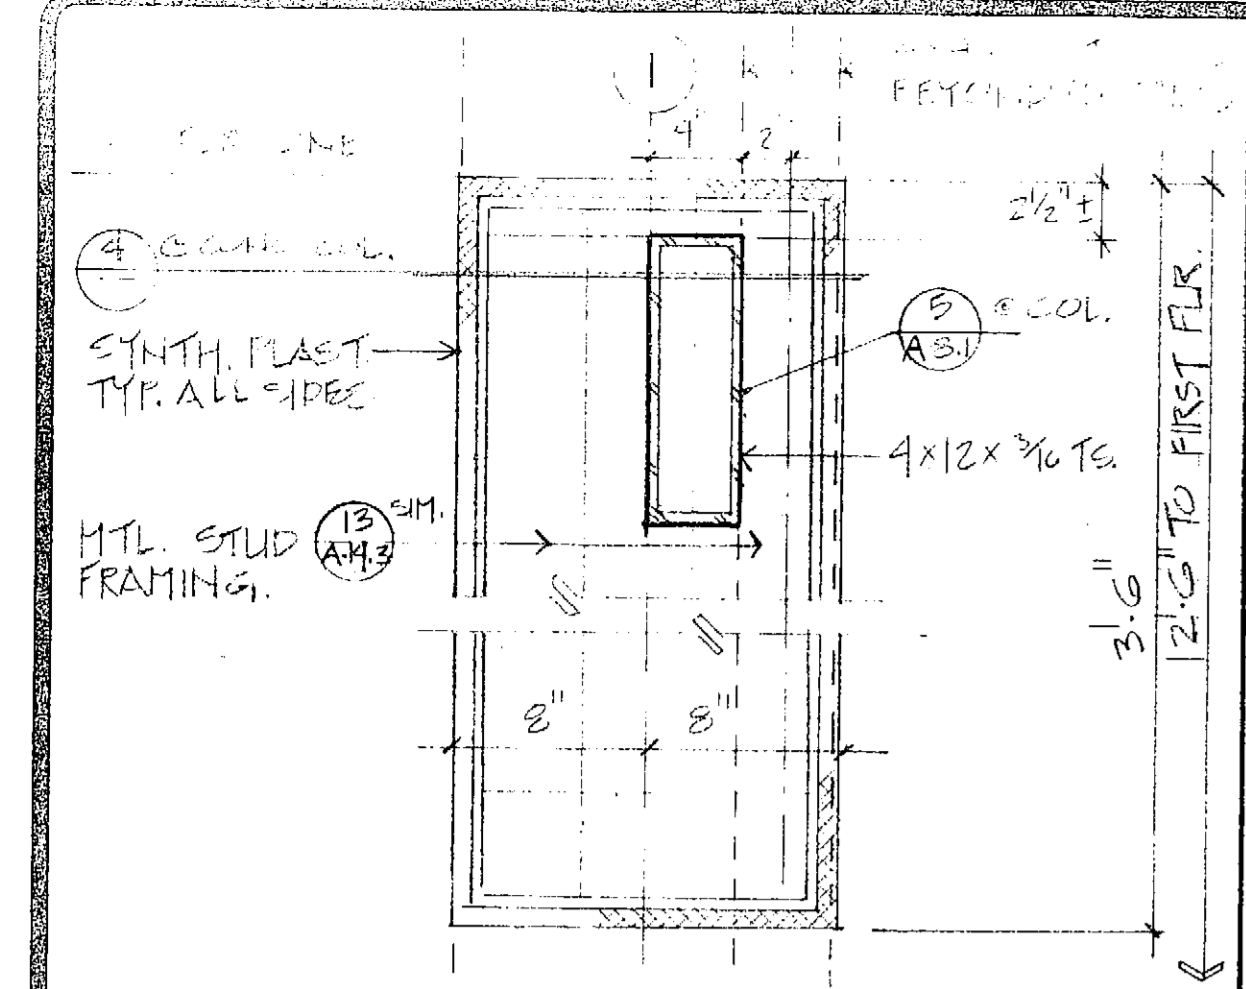 1
4"
2
2 1/2" ±
4
COL.
SYNTH. PLAST.
TYP. ALL SIDES
5
A8.1
@ COL.
4x12x 3/16 TS.
MTL. STUD
FRAMING.
13
A.14.3
SIM.
8"
8"
3'-6"
12'-6" TO FIRST FLR.